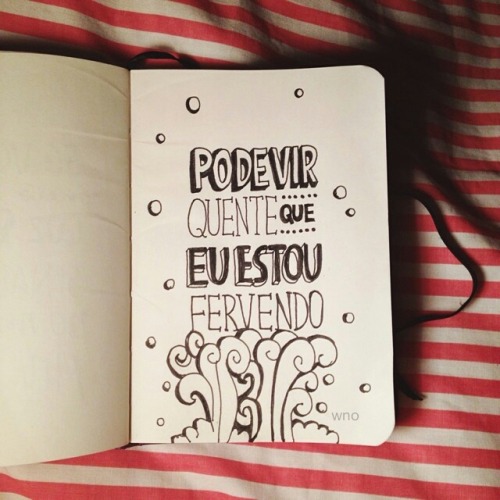 PODEVIR
QUENTE QUE
EU ESTOU
FERVENDO
wno